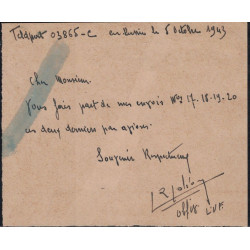 03865-C en Russie le 5 Octobre 1943
Cher Monsieur
Vous fais part de mes envois Nos 17-18-19-20
ces deux derniers par avions.
Souvenir Respectueux